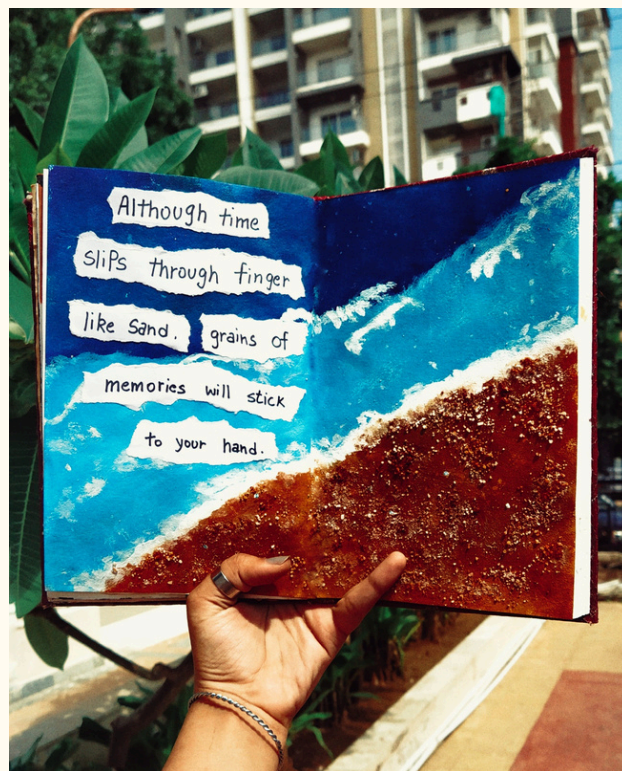 Although time
slips through finger
like Sand. grains of
memories will stick
to your hand.